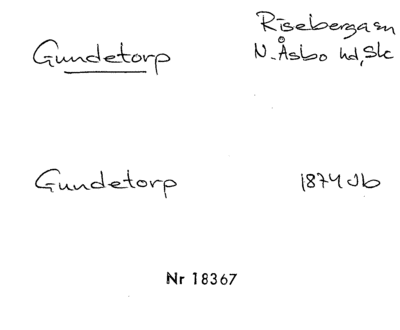 Gundetorp
Riseberga sn
N. Åsbo hd, Sk
Gundetorp
1874 Jb
Nr 18367